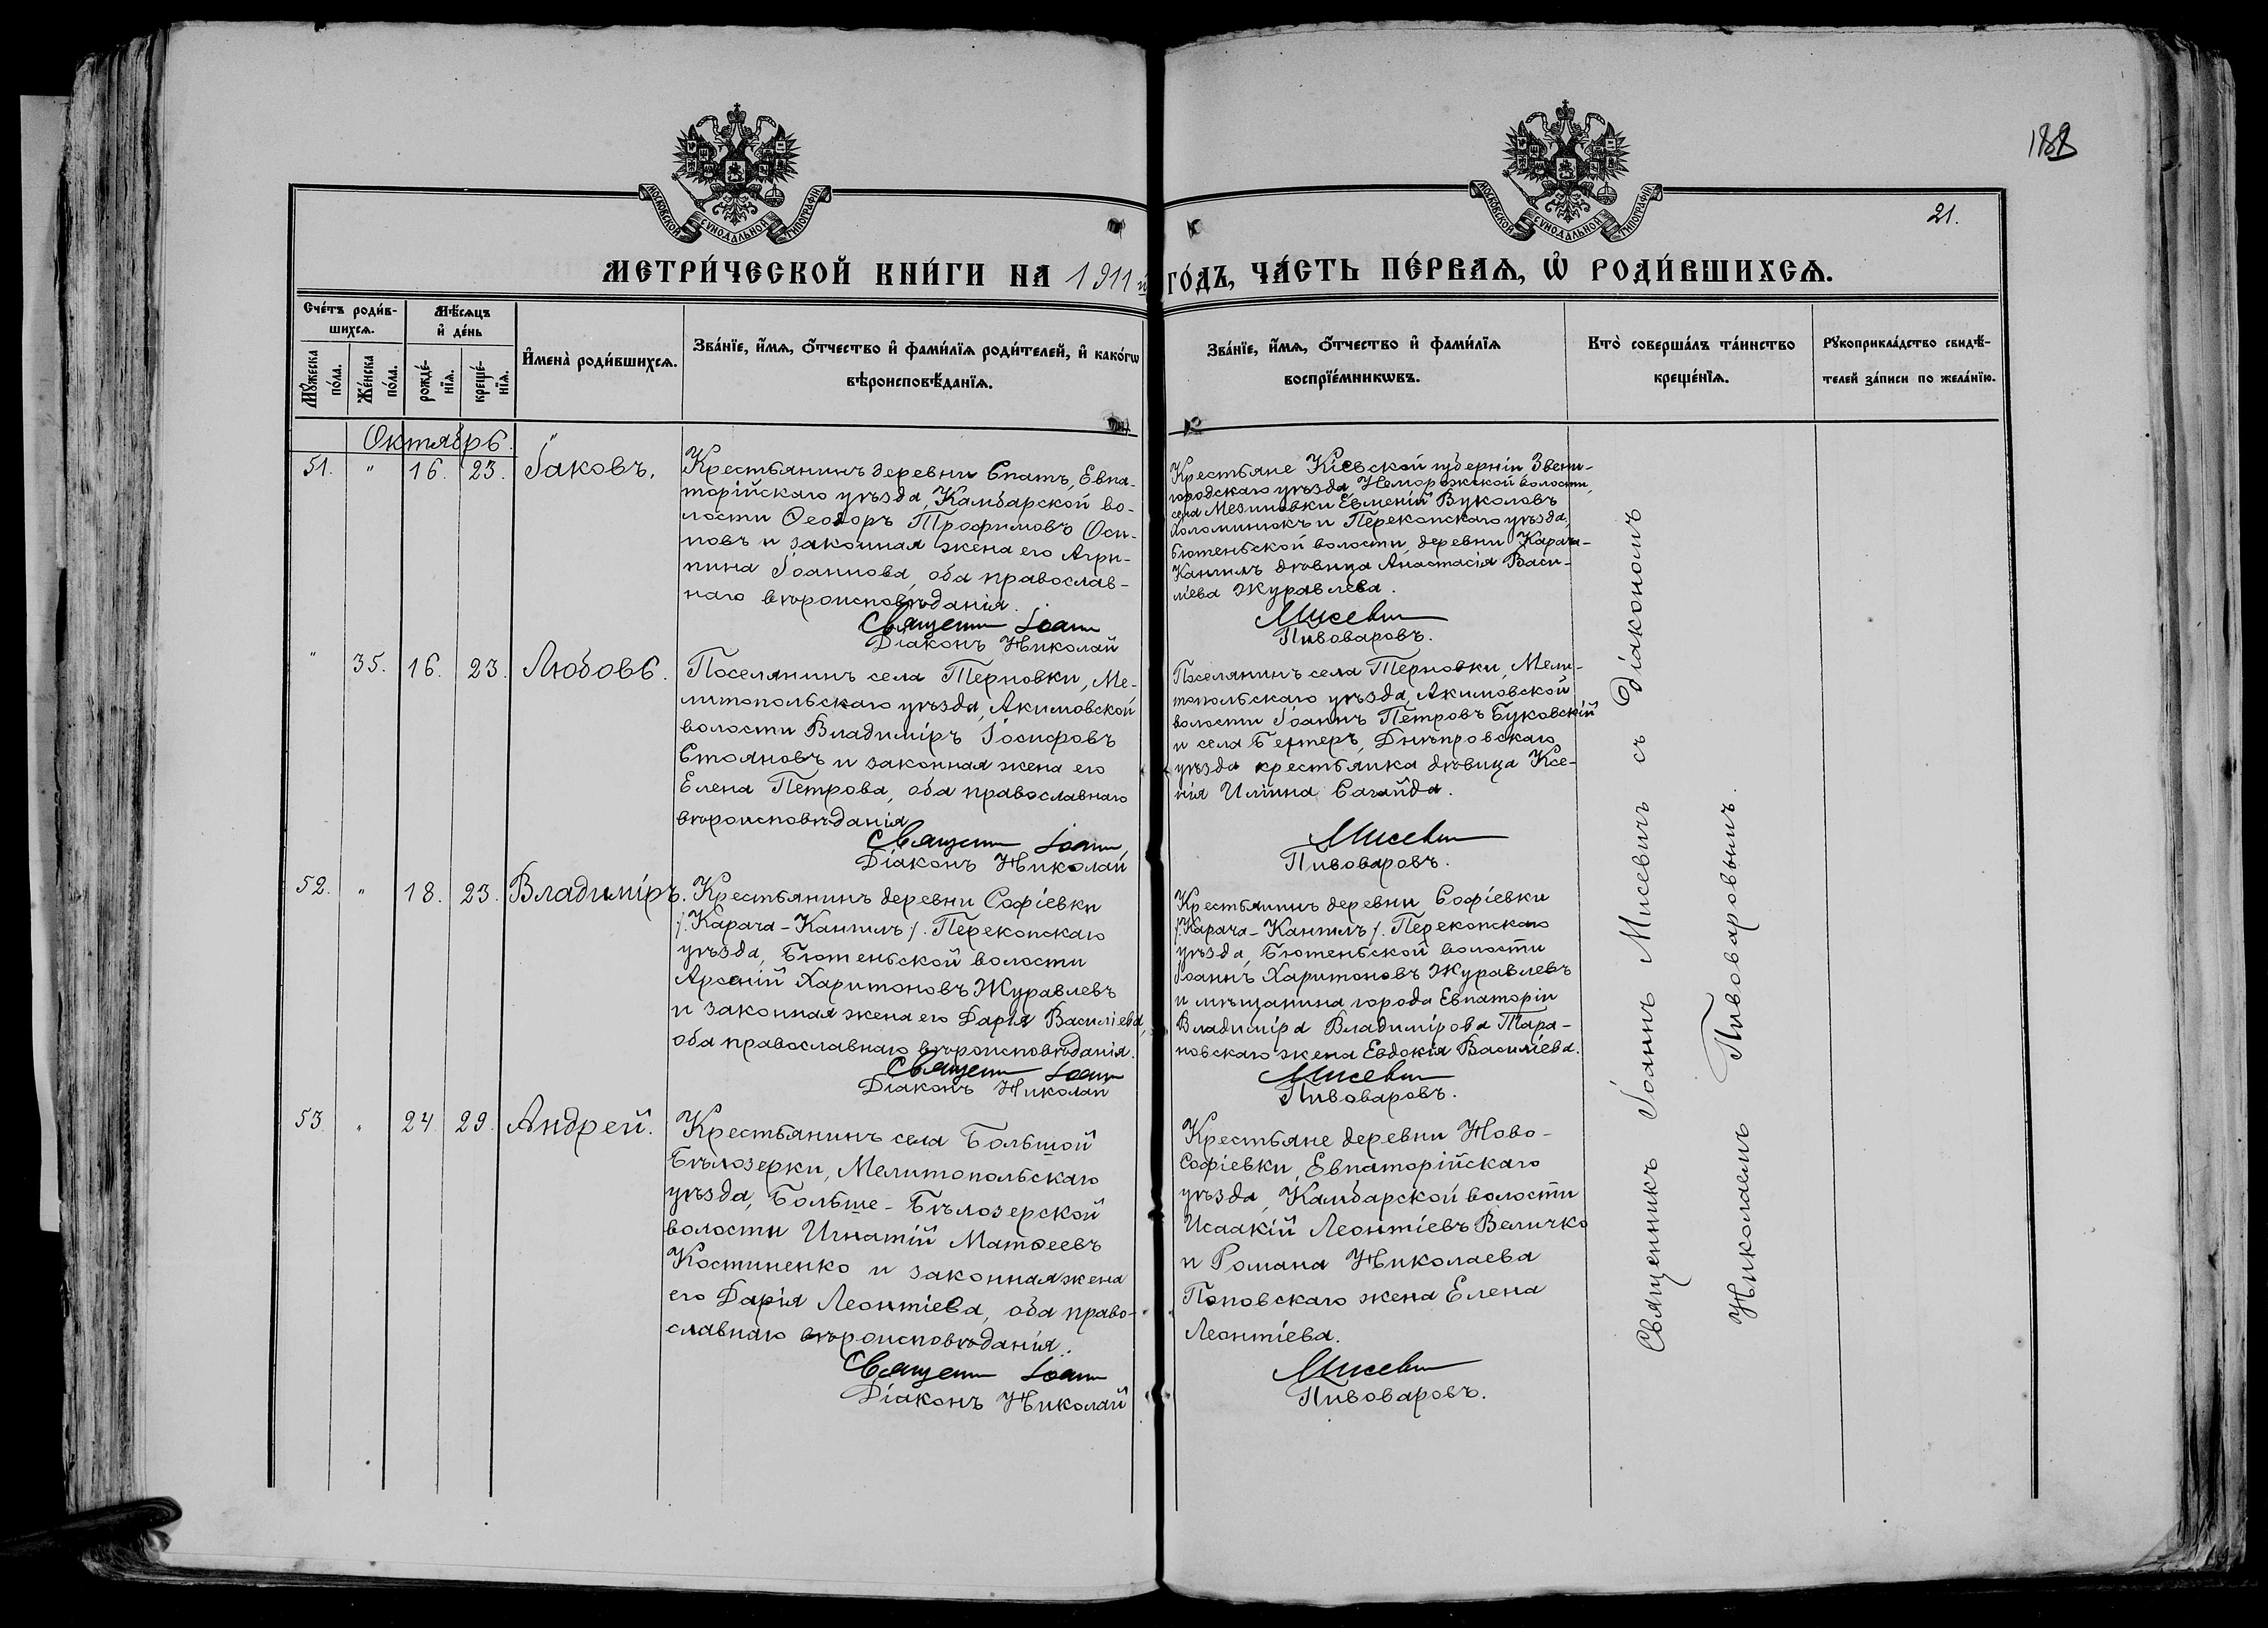 188
21.
МОСКОВСКОЙ СѴНОДАЛЬНОЙ ТИПОГРАФІИ
МОСКОВСКОЙ СѴНОДАЛЬНОЙ ТИПОГРАФІИ
МЕТРИ́ЧЕСКОЙ КНИ́ГИ НА 1911 й ГО́ДЪ, ЧА́СТЬ ПЕ́РВАѦ, Ѡ҆ РОДИ́ВШИХСѦ.
Сче́тъ роди́в-
шихсѧ.
Мꙋ́жеска по́ла.
Же́нска по́ла.
Мѣ́сѧцъ
и҆ де́нь
рожде́-нїѧ.
креще́-нїѧ.
И҆мена̀ роди́вшихсѧ.
Зва́нїе, и҆́мѧ, ѻ҆́тчество и҆ фами́лїѧ роди́телей, и҆ како́гѡ
вѣроисповѣ́данїѧ.
Зва́нїе, и҆́мѧ, ѻ҆́тчество и҆ фами́лїѧ
воспрїе́мникѡвъ.
Кто̀ соверша́лъ та́инство
креще́нїѧ.
Рꙋкоприкла́дство свидѣ́-
телей за́писи по жела́нїю.
Октябрь.
51. " 16. 23. Іаковъ.
Крестьянинъ деревни Спатъ, Евпа-
торійскаго уѣзда, Камбарской во-
лости Ѳеодоръ Трофимовъ Оси-
повъ и законная жена его Агри-
пина Іоаннова, оба православ-
наго вѣроисповѣданія.
Священн Іоанн
Діаконъ Николай
Крестьяне Кіевской губерніи, Звени-
городскаго уѣзда, Неморожской волости,
села Мезиновки Евменій Вуколовъ
Коломиюкъ и Перекопскаго уѣзда,
Бютеньской волости, деревни Карача-
Кангилъ дѣвица Анастасія Васи-
ліева Журавлева.
Мисевич
Пивоваровъ.
" 35. 16. 23. Любовь.
Поселянинъ села Терновки, Ме-
литопольскаго уѣзда, Акимовской
волости Владиміръ Іосифовъ
Стояновъ и законная жена его
Елена Петрова, оба православнаго
вѣроисповѣданія
Священн Іоанн
Діаконъ Николай
Поселянинъ села Терновки, Мели-
топольскаго уѣзда, Акимовской
волости Іоаннъ Петровъ Буковскій
и села Бехтеръ, Днѣпровскаго
уѣзда крестьянка дѣвица Ксе-
нія Иліина Сагайда.
Мисевич
Пивоваровъ.
52. " 18. 23. Владиміръ.
Крестьянинъ деревни Софіевки
/. Карача-Кангилъ /. Перекопскаго
уѣзда, Бютеньской волости
Арсеній Харитоновъ Журавлевъ
и законная жена его Дарія Василіева,
оба православнаго вѣроисповѣданія.
Священн Іоанн
Діаконъ Николай
Крестьянинъ деревни Софіевки
/. Карача-Кангилъ /. Перекопскаго
уѣзда, Бютеньской волости
Іоаннъ Харитоновъ Журавлевъ
и мѣщанина города Евпаторіи
Владиміра Владимірова Тара-
новскаго жена Евдокія Василіева.
Мисевич
Пивоваровъ.
53. " 24. 29. Андрей.
Крестьянинъ села Большой
Бѣлозерки, Мелитопольскаго
уѣзда, Больше-Бѣлозерской
волости Игнатій Матѳеевъ
Костиненко и законная жена
его Дарія Леонтіева, оба право-
славнаго вѣроисповѣданія.
Священн Іоанн
Діаконъ Николай
Крестьяне деревни Ново-
Софіевки, Евпаторійскаго
уѣзда, Камбарской волости
Исаакій Леонтіевъ Величко
и Романа Николаева
Поповскаго жена Елена
Леонтіева.
Мисевич
Пивоваровъ.
Священникъ Іоаннъ Мисевичъ съ Діакономъ
Николаемъ Пивоваровымъ.